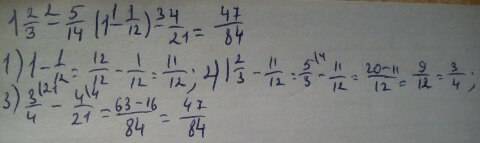 1 2/3 −² 5/14 (1 −¹ 1/12) −³ 4/21 = 47/84
1) 1 − 1/12 = 12/12 − 1/12 = 11/12; 2) 1 2/3 − 11/12 = 5/3 \4 − 11/12 = (20−11)/12 = 9/12 = 3/4;
3) 3/4 \21 − 4/21 \4 = (63−16)/84 = 47/84